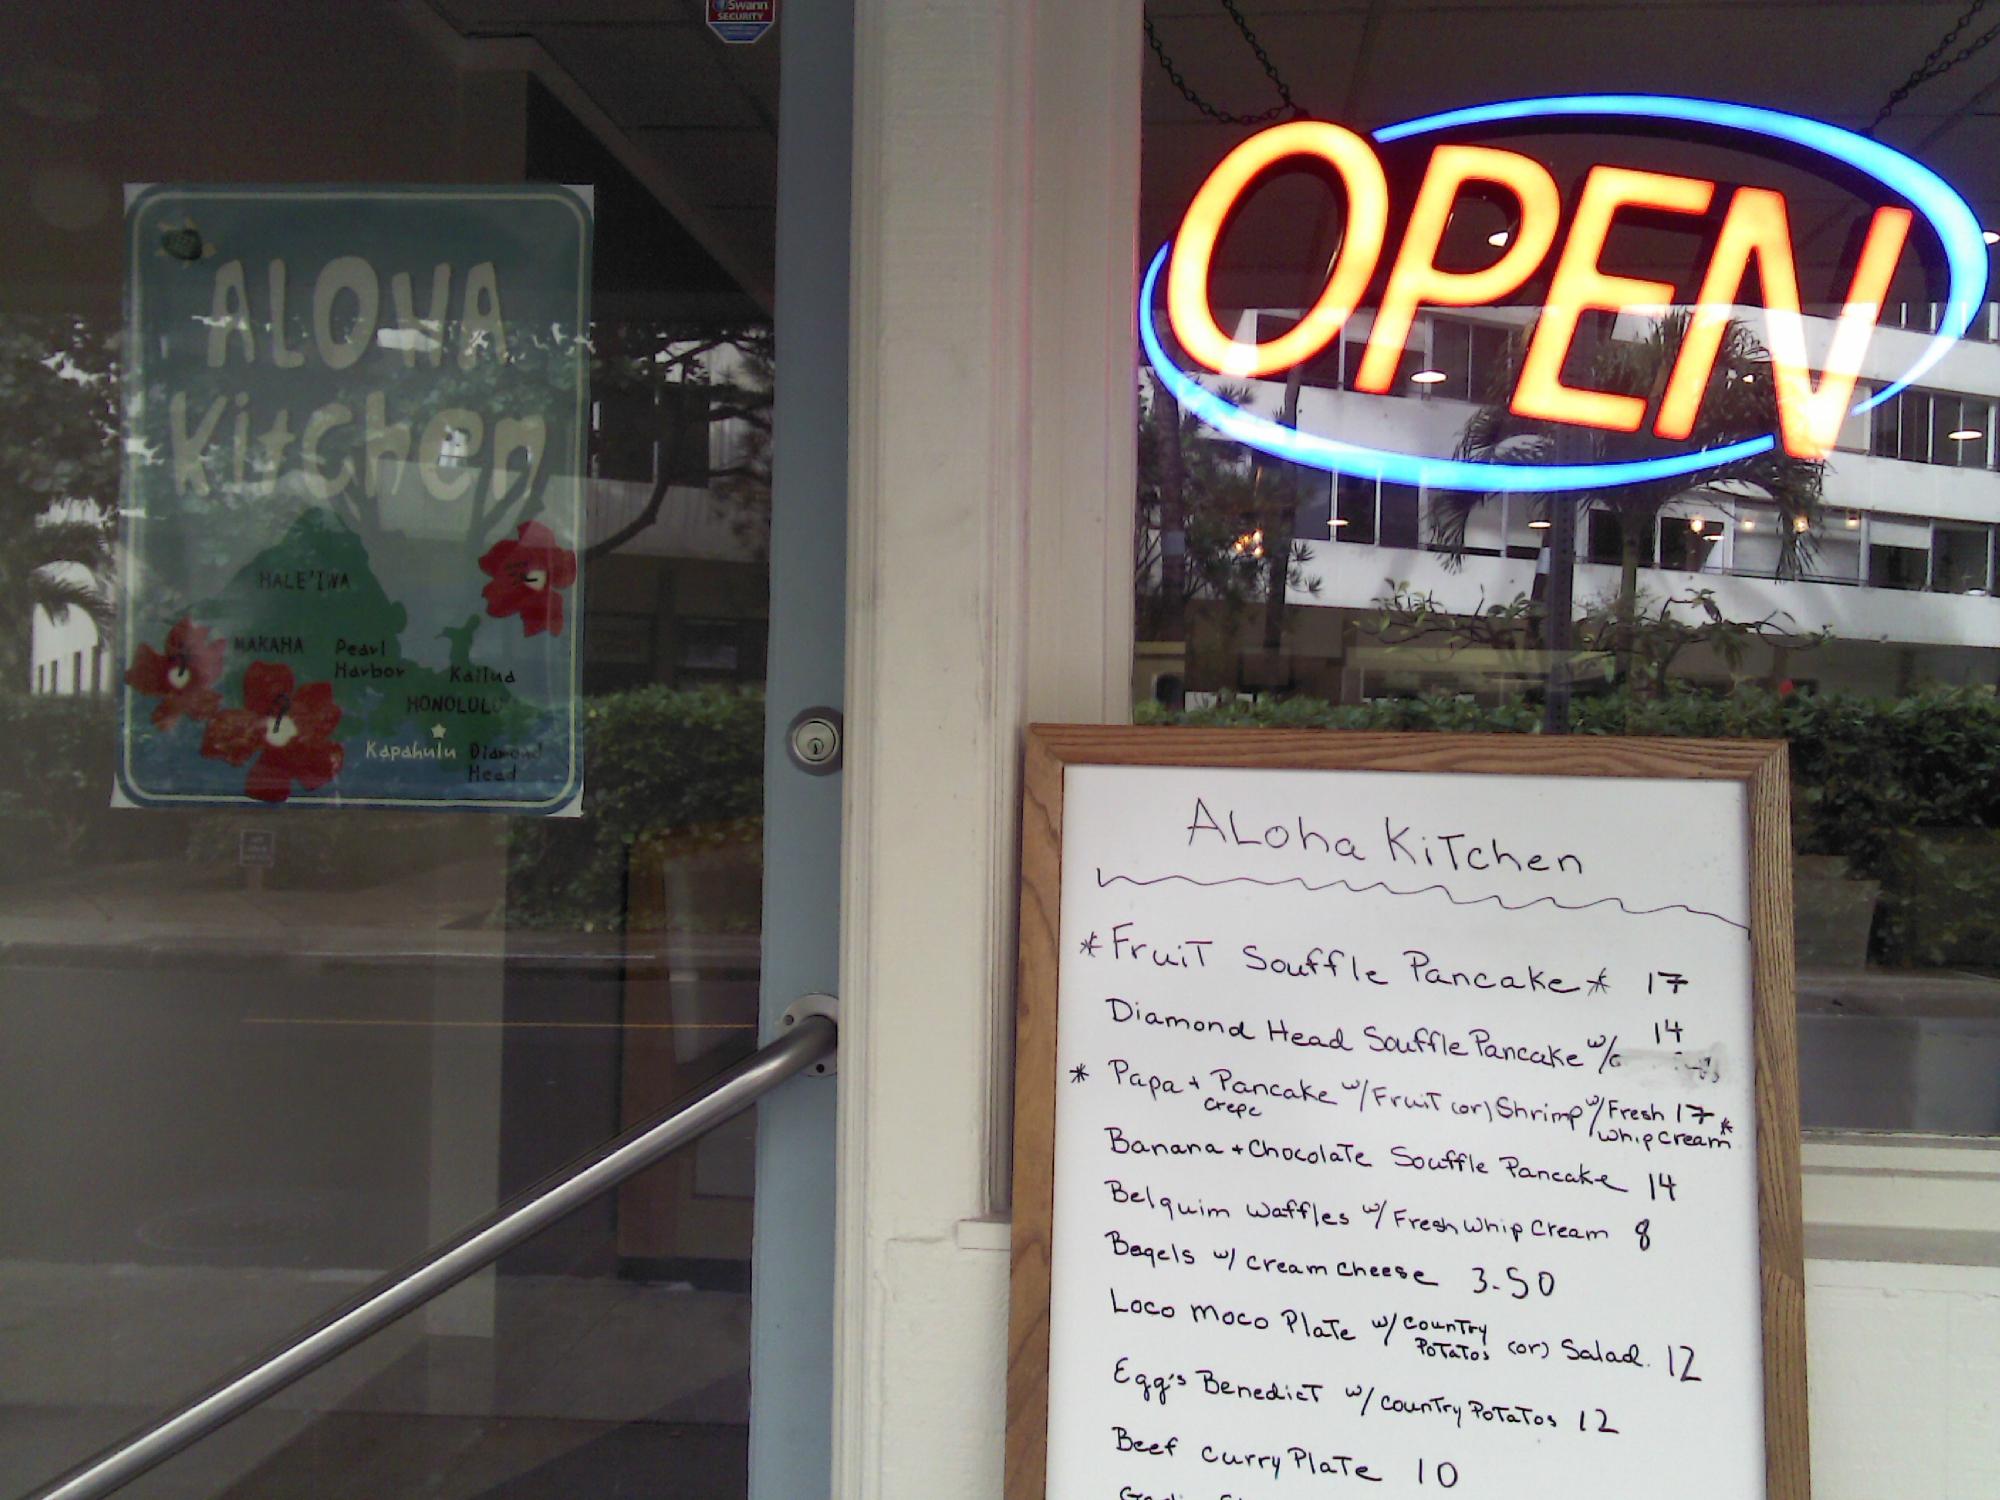 Swann
SECURITY
ALOHA
Kitchen
HALE'IWA
MAKAHA
Pearl
Harbor
Kailua
HONOLULU
Kapahulu
Diamond
Head
OPEN
ALoha KiTchen
*FruiT Souffle Pancake* 17
Diamond Head Souffle Pancake w/ 14
* Papa + Pancake w/FruiT (or) Shrimp w/Fresh 17*
crepe
whip cream
Banana + Chocolate Souffle Pancake 14
Belquim waffles w/ Fresh whip cream 8
Bagels w/ cream cheese 3.50
Loco moco Plate w/ country
PoTaTos (or) Salad. 12
Egg's Benedict w/ country PoTaTos 12
Beef curry Plate 10